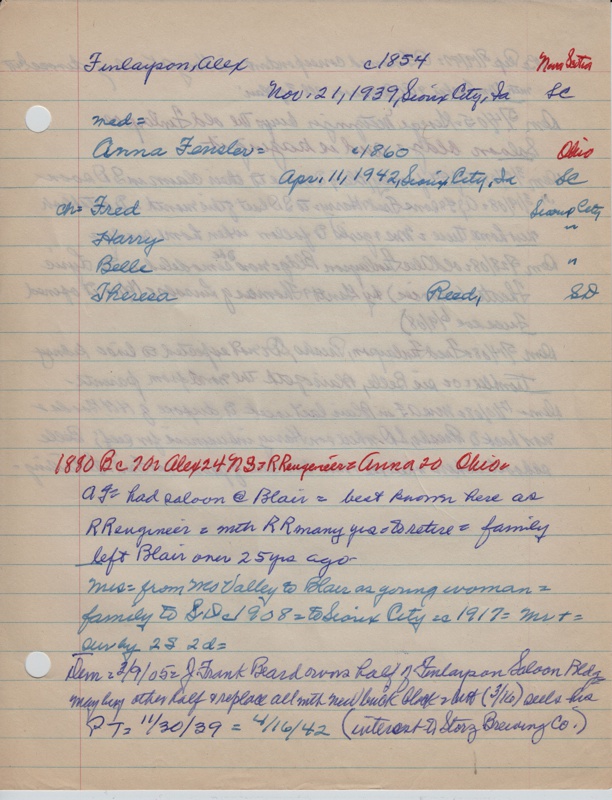 Finlayson, Alex c1854 Nova Scotia
Nov. 21, 1939, Sioux City, Ia SC
med=
Anna Fensler= c1860 Ohio
Apr. 11, 1942, Sioux City, Ia SC
ch= Fred Sioux City
Harry "
Belle "
Theresa Reed, SD
1880 Bc 70r Alex 24 NS=RRengineer=Anna 20 Ohio=
AF= had saloon @ Blair = best known here as
RRengineer = with RR many yrs = to retire = family
left Blair over 25 yrs ago
Mrs= from Mo Valley to Blair as young woman =
family to S.D. c1908 = to Sioux City c 1917= Mr +=
surv by 2S 2d=
Dem = 3/9/05= J. Frank Beard owns half of Finlayson Saloon Bldg
may buy other half & replace all with new brick block = but (3/16) sells his
PT= 11/30/39 = 4/16/42 (interest to Storz Brewing Co.)